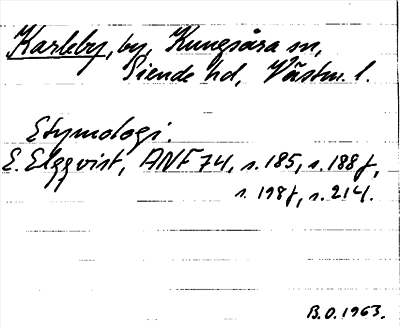 Karleby, by, Kungsåra sn,
Siende hd, Västm. l.
Etymologi.
E. Elqqvist, ANF 74, s. 185, s. 188f,
s. 198f, s. 214f.
B.O. 1963.